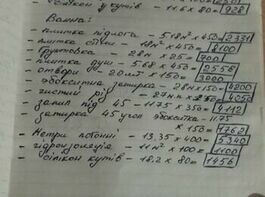 силікон у кутів - 11.6 x 80 = 928
Ванна:
- плитка підлога - 5.18 м² x 450 = 2331
- плитка стіни - 18 м² x 450 = 8100
- грунтовка - 28 м x 25 = 700
- плитка душ - 5.68 x 450 = 2556
- отвори - 20 шт x 150 = 3000
- обклеїтка затирка - 28 м x 150 = 4200
- чистий різ - 27 м.п x 150 = 4050
- запил під 45 - 11.75 x 350 = 4112
- затирка 45 угол - 11.75
x 150 = 1762
- Метри погонні - 13,35 x 400 = 5340
- гідроізоляція - 11 м² x 100 = 1100
- силікон кутів - 18.2 x 80 = 1456